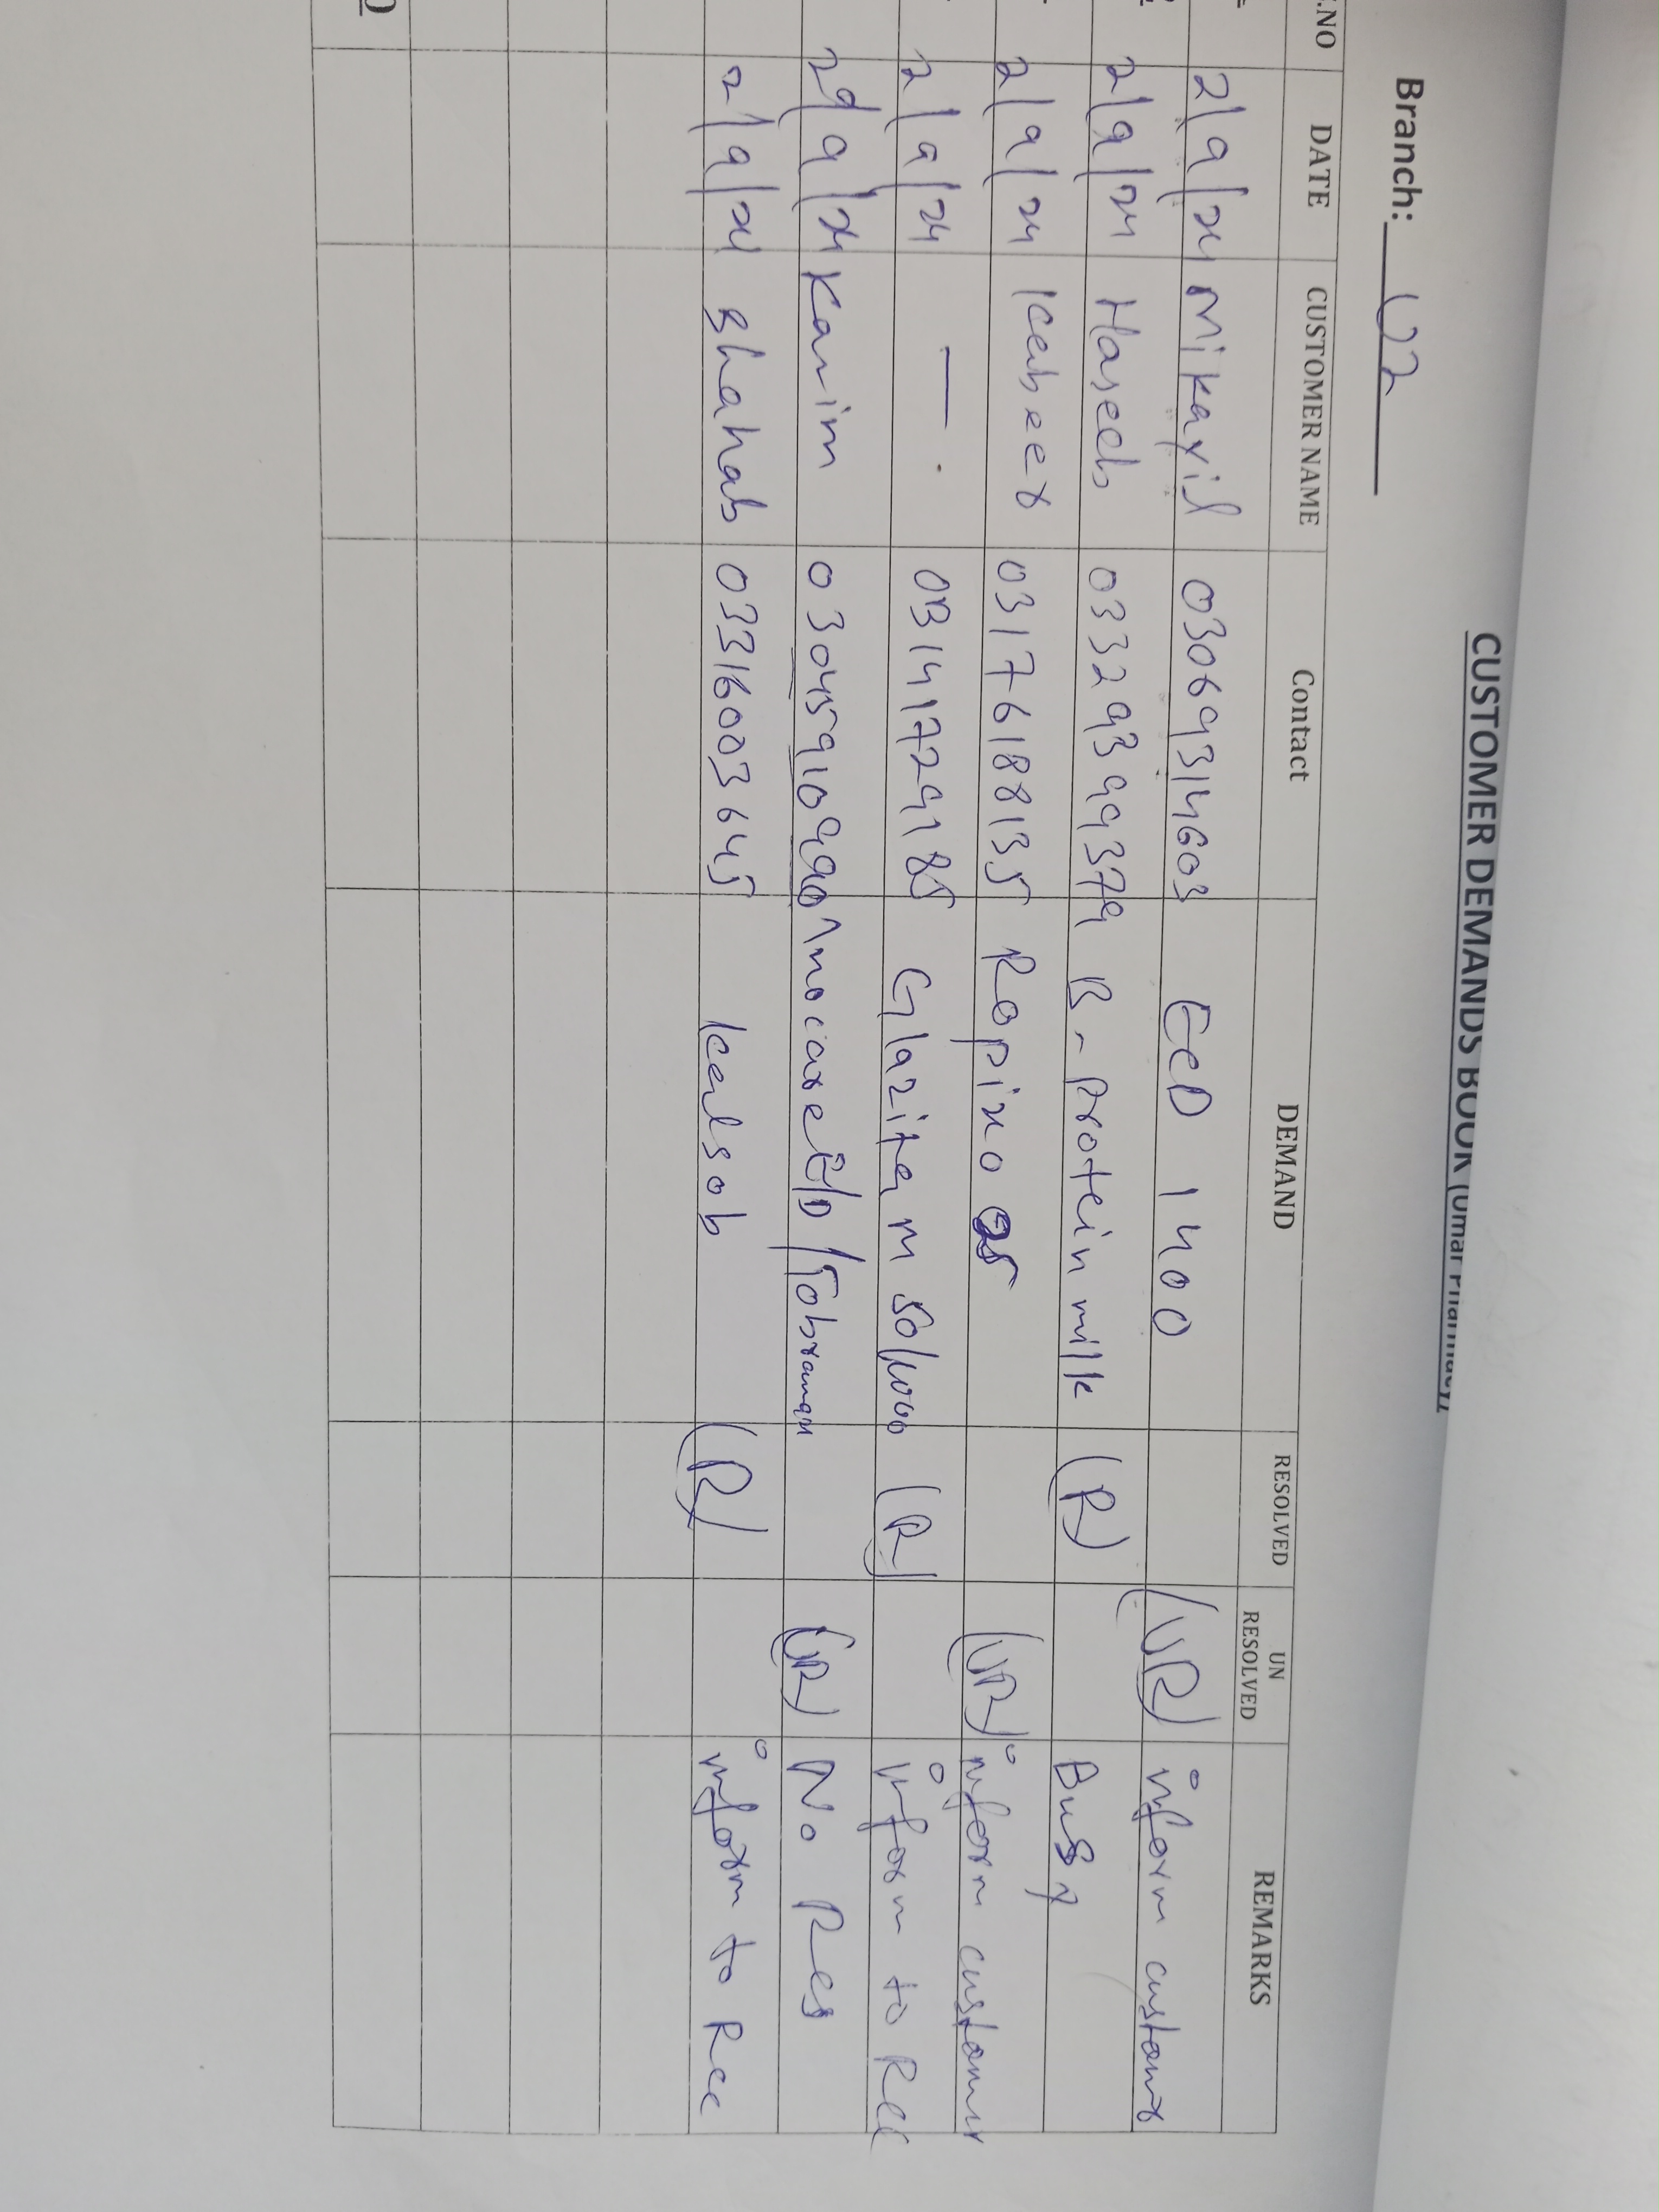 CUSTOMER DEMANDS BOOK (Umar Pharmacy)
Branch: U2
S.NO DATE CUSTOMER NAME Contact DEMAND RESOLVED UN RESOLVED REMARKS
2/9/24 Mikaxil 03069314603 ECD 1400 (UR) inform customr
2/9/24 Haseeb 03329399379 B-Protein milk (R) Busy
2/9/24 03176188135 Ropixo (UR) inform customer
2/9/24 — 03141729185 Glazita m 50/1000 (R) inform to Rec
Karim (UR) No Res
2/9/24 Shahab 03316003645 (R) inform to Rec